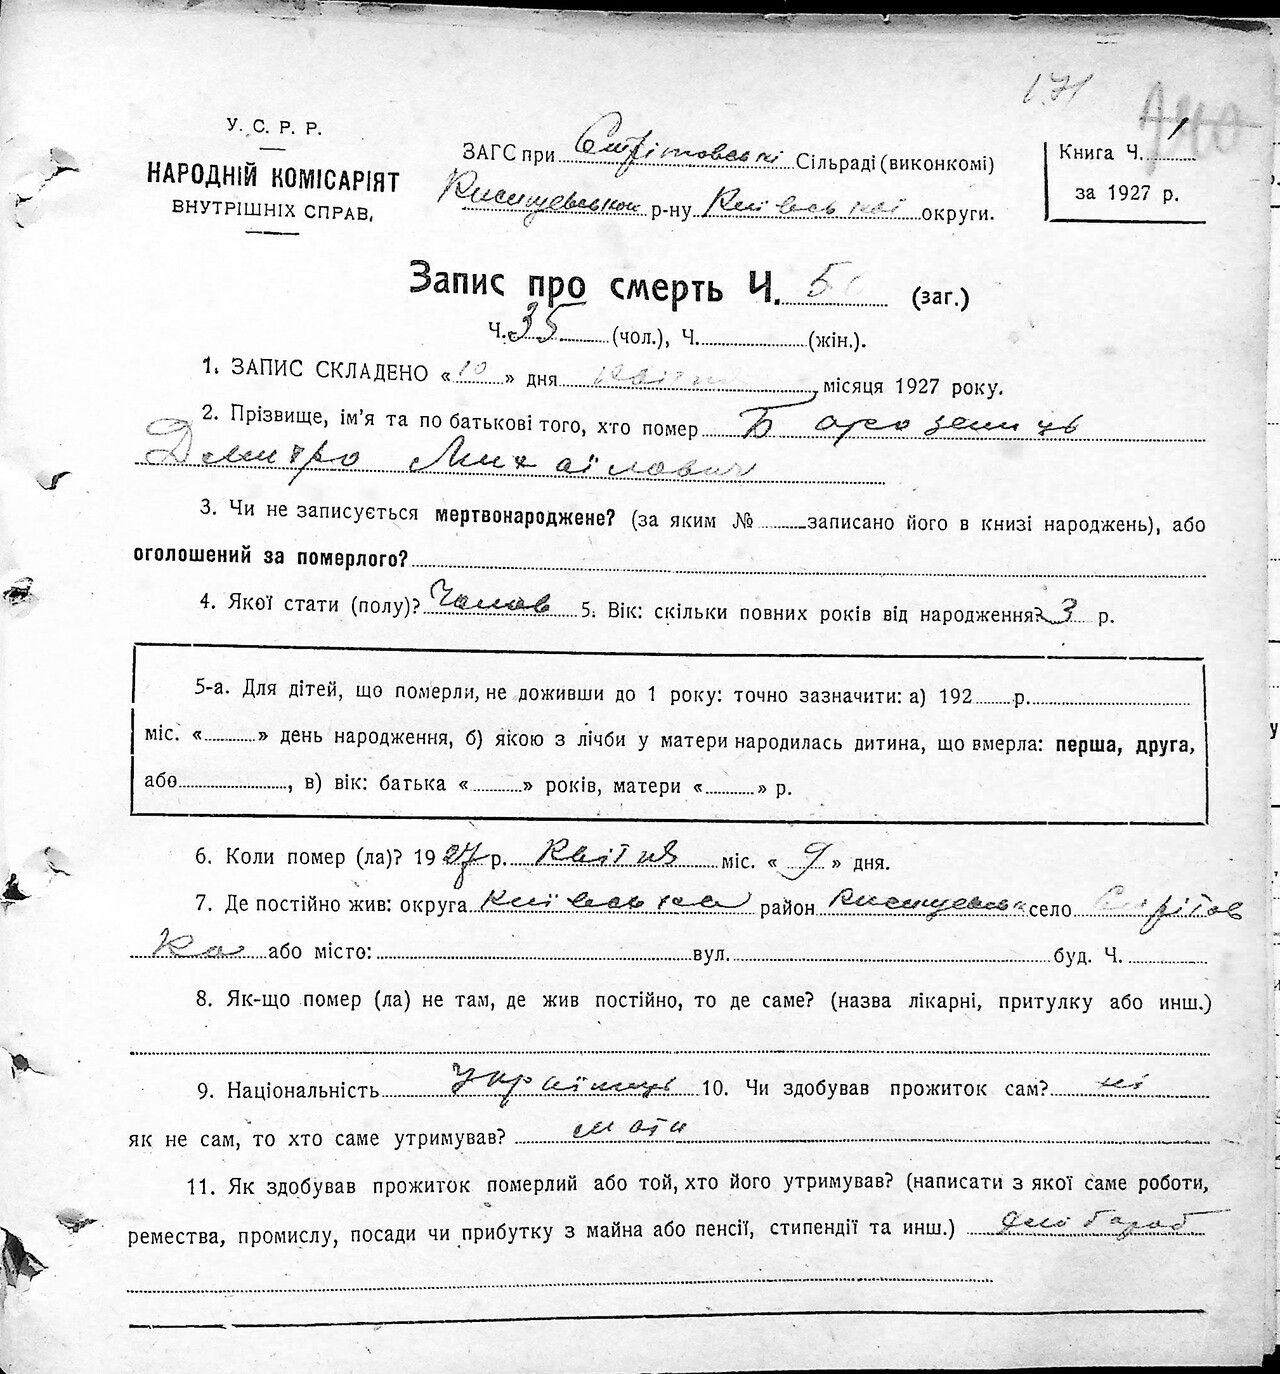 171
У. С. Р. Р.
НАРОДНІЙ КОМІСАРІЯТ
ВНУТРІШНІХ СПРАВ.
ЗАГС при Сигнітовські Сільраді (виконкомі)
р-ну Київської округи.
Книга Ч. 1
за 1927 р.
Запис про смерть Ч. 5 (заг.)
Ч. 35 (чол.), Ч. (жін.).
1. ЗАПИС СКЛАДЕНО « 10 » дня Квітня місяця 1927 року.
2. Прізвище, ім'я та по батькові того, хто помер
Дмитро Михайлович
3. Чи не записується мертвонароджене? (за яким № записано його в книзі народжень), або
оголошений за померлого?
4. Якої стати (полу)? Чолов 5. Вік: скільки повних років від народження? 3 р.
5-а. Для дітей, що померли, не доживши до 1 року: точно зазначити: а) 192 р.
міс. « » день народження, б) якою з лічби у матери народилась дитина, що вмерла: перша, друга,
або , в) вік: батька « » років, матери « » р.
6. Коли помер (ла)? 1927 р. Квітня міс. « 9 » дня.
7. Де постійно жив: округа Київська район село
ка або місто: вул. буд. Ч.
8. Як-що помер (ла) не там, де жив постійно, то де саме? (назва лікарні, притулку або инш.)
9. Національність Українець 10. Чи здобував прожиток сам? ні
як не сам, то хто саме утримував? мати
11. Як здобував прожиток померлий або той, хто його утримував? (написати з якої саме роботи,
ремества, промислу, посади чи прибутку з майна або пенсії, стипендії та инш.)